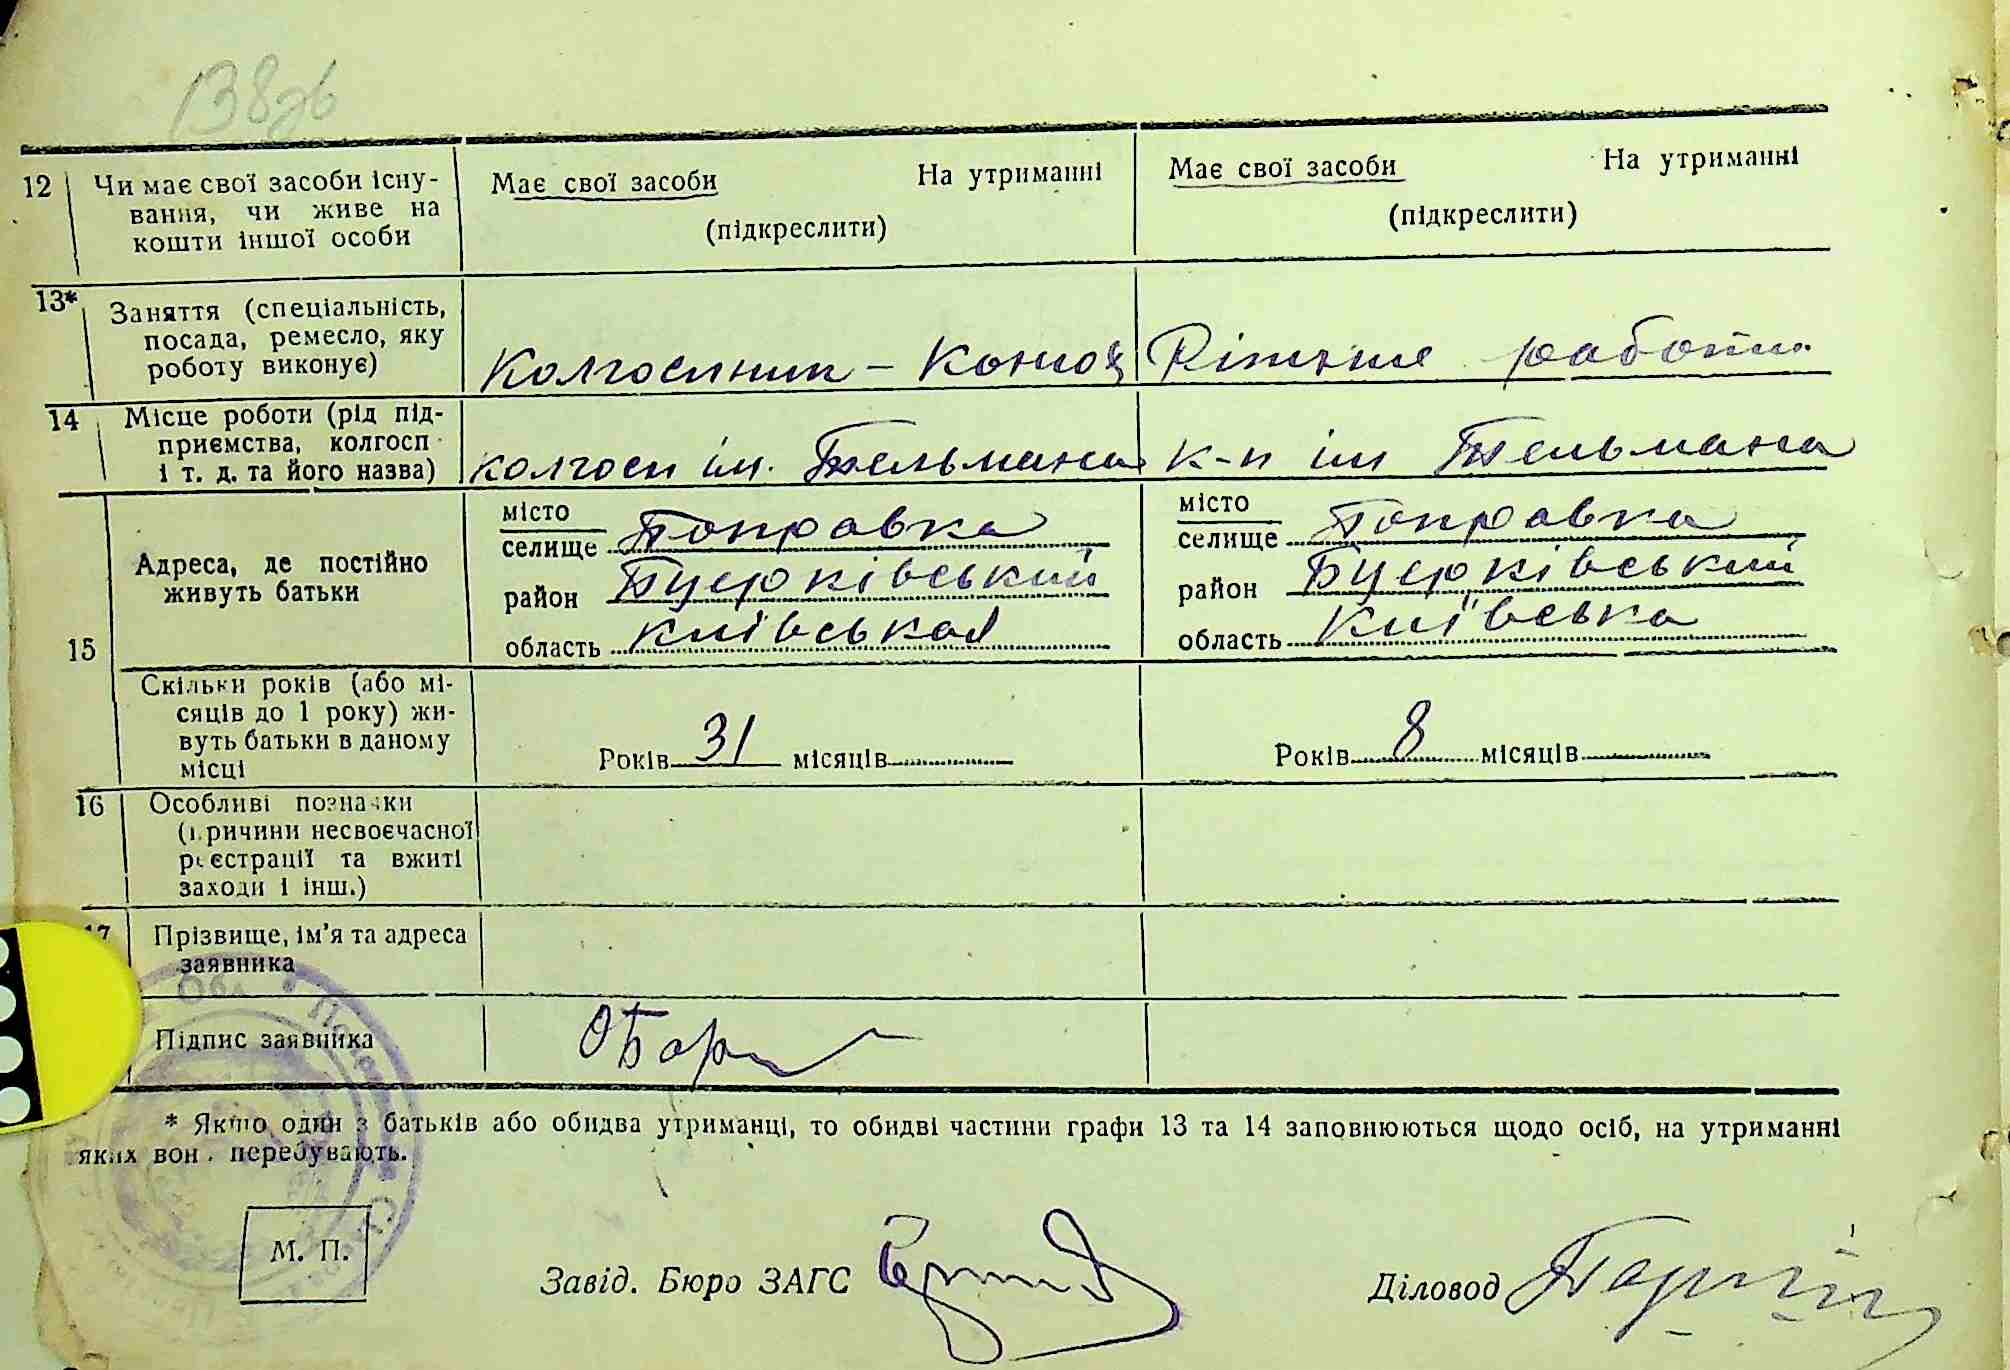 138зв
12 Чи має свої засоби існу-
вання, чи живе на
кошти іншої особи
Має свої засоби На утриманні
(підкреслити)
Має свої засоби На утриманні
(підкреслити)
13* Заняття (спеціальність,
посада, ремесло, яку
роботу виконує)
Колгоспник – Конюх
Різньне работи
14 Місце роботи (рід під-
приємства, колгосп
і т. д. та його назва)
колгосп ім. Тельмана
к-п ім Тельмана
15 Адреса, де постійно
живуть батьки
місто
селище Поправка
район Б-церківський
область київськая
місто
селище Поправка
район Б-церківський
область Київська
Скільки років (або мі-
сяців до 1 року) жи-
вуть батьки в даному
місці
Років 31 місяців
Років 8 місяців
16 Особливі познанки
(причини несвоєчасної
реєстрації та вжиті
заходи і інш.)
17 Прізвище, ім'я та адреса
заявника
Підпис заявника
* Якщо один з батьків або обидва утриманці, то обидві частини графи 13 та 14 заповнюються щодо осіб, на утриманні
яких вони перебувають.
М. П.
Завід. Бюро ЗАГС
Діловод